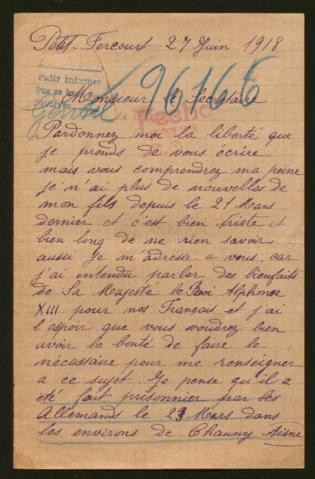 Petit-Fercourt 27 Juin 1918
Pedir informes
que se
96166
Monsieur le Secrétaire
Pardonnez moi la liberté que
je prends de vous écrire
mais vous comprendrez ma peine
je n'ai plus de nouvelles de
mon fils depuis le 21 Mars
dernier et c'est bien triste et
bien long de ne rien savoir
aussi je m'adresse a vous car
j'ai entendu parler des bienfaits
de Sa Majesté le Roi Alphonse
XIII pour nos Français et j'ai
l'espoir que vous voudrez bien
avoir la bonté de faire le
nécessaire pour me renseigner
a ce sujet. Je pense qu'il a
été fait prisonnier par les
Allemands le 23 Mars dans
les environs de Chauny Aisne